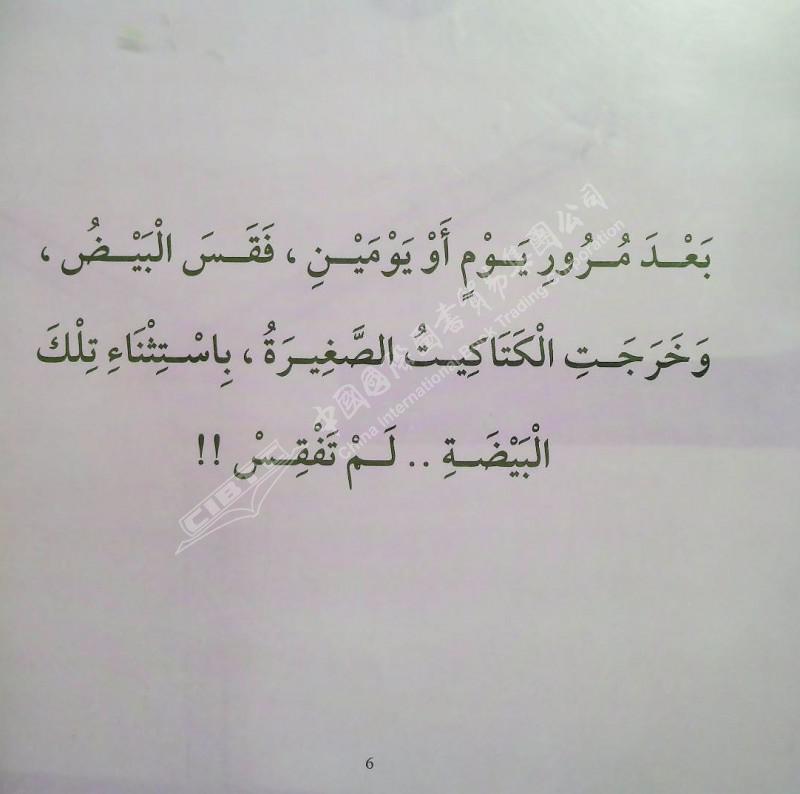 بَعْـدَ مُـرُورِ يَـوْمٍ أَوْ يَوْمَيْـنِ ، فَقَـسَ الْبَيْـضُ ،
وَخَرَجَـتِ الْكَتَاكِيـتُ الصَّغِيـرَةُ ، بِاسْـتِثْنَاءِ تِلْـكَ
الْبَيْضَـةِ .. لَـمْ تَفْقِـسْ !!
中国国际图书贸易集团公司
China International Book Trading Corporation
CIBT
6